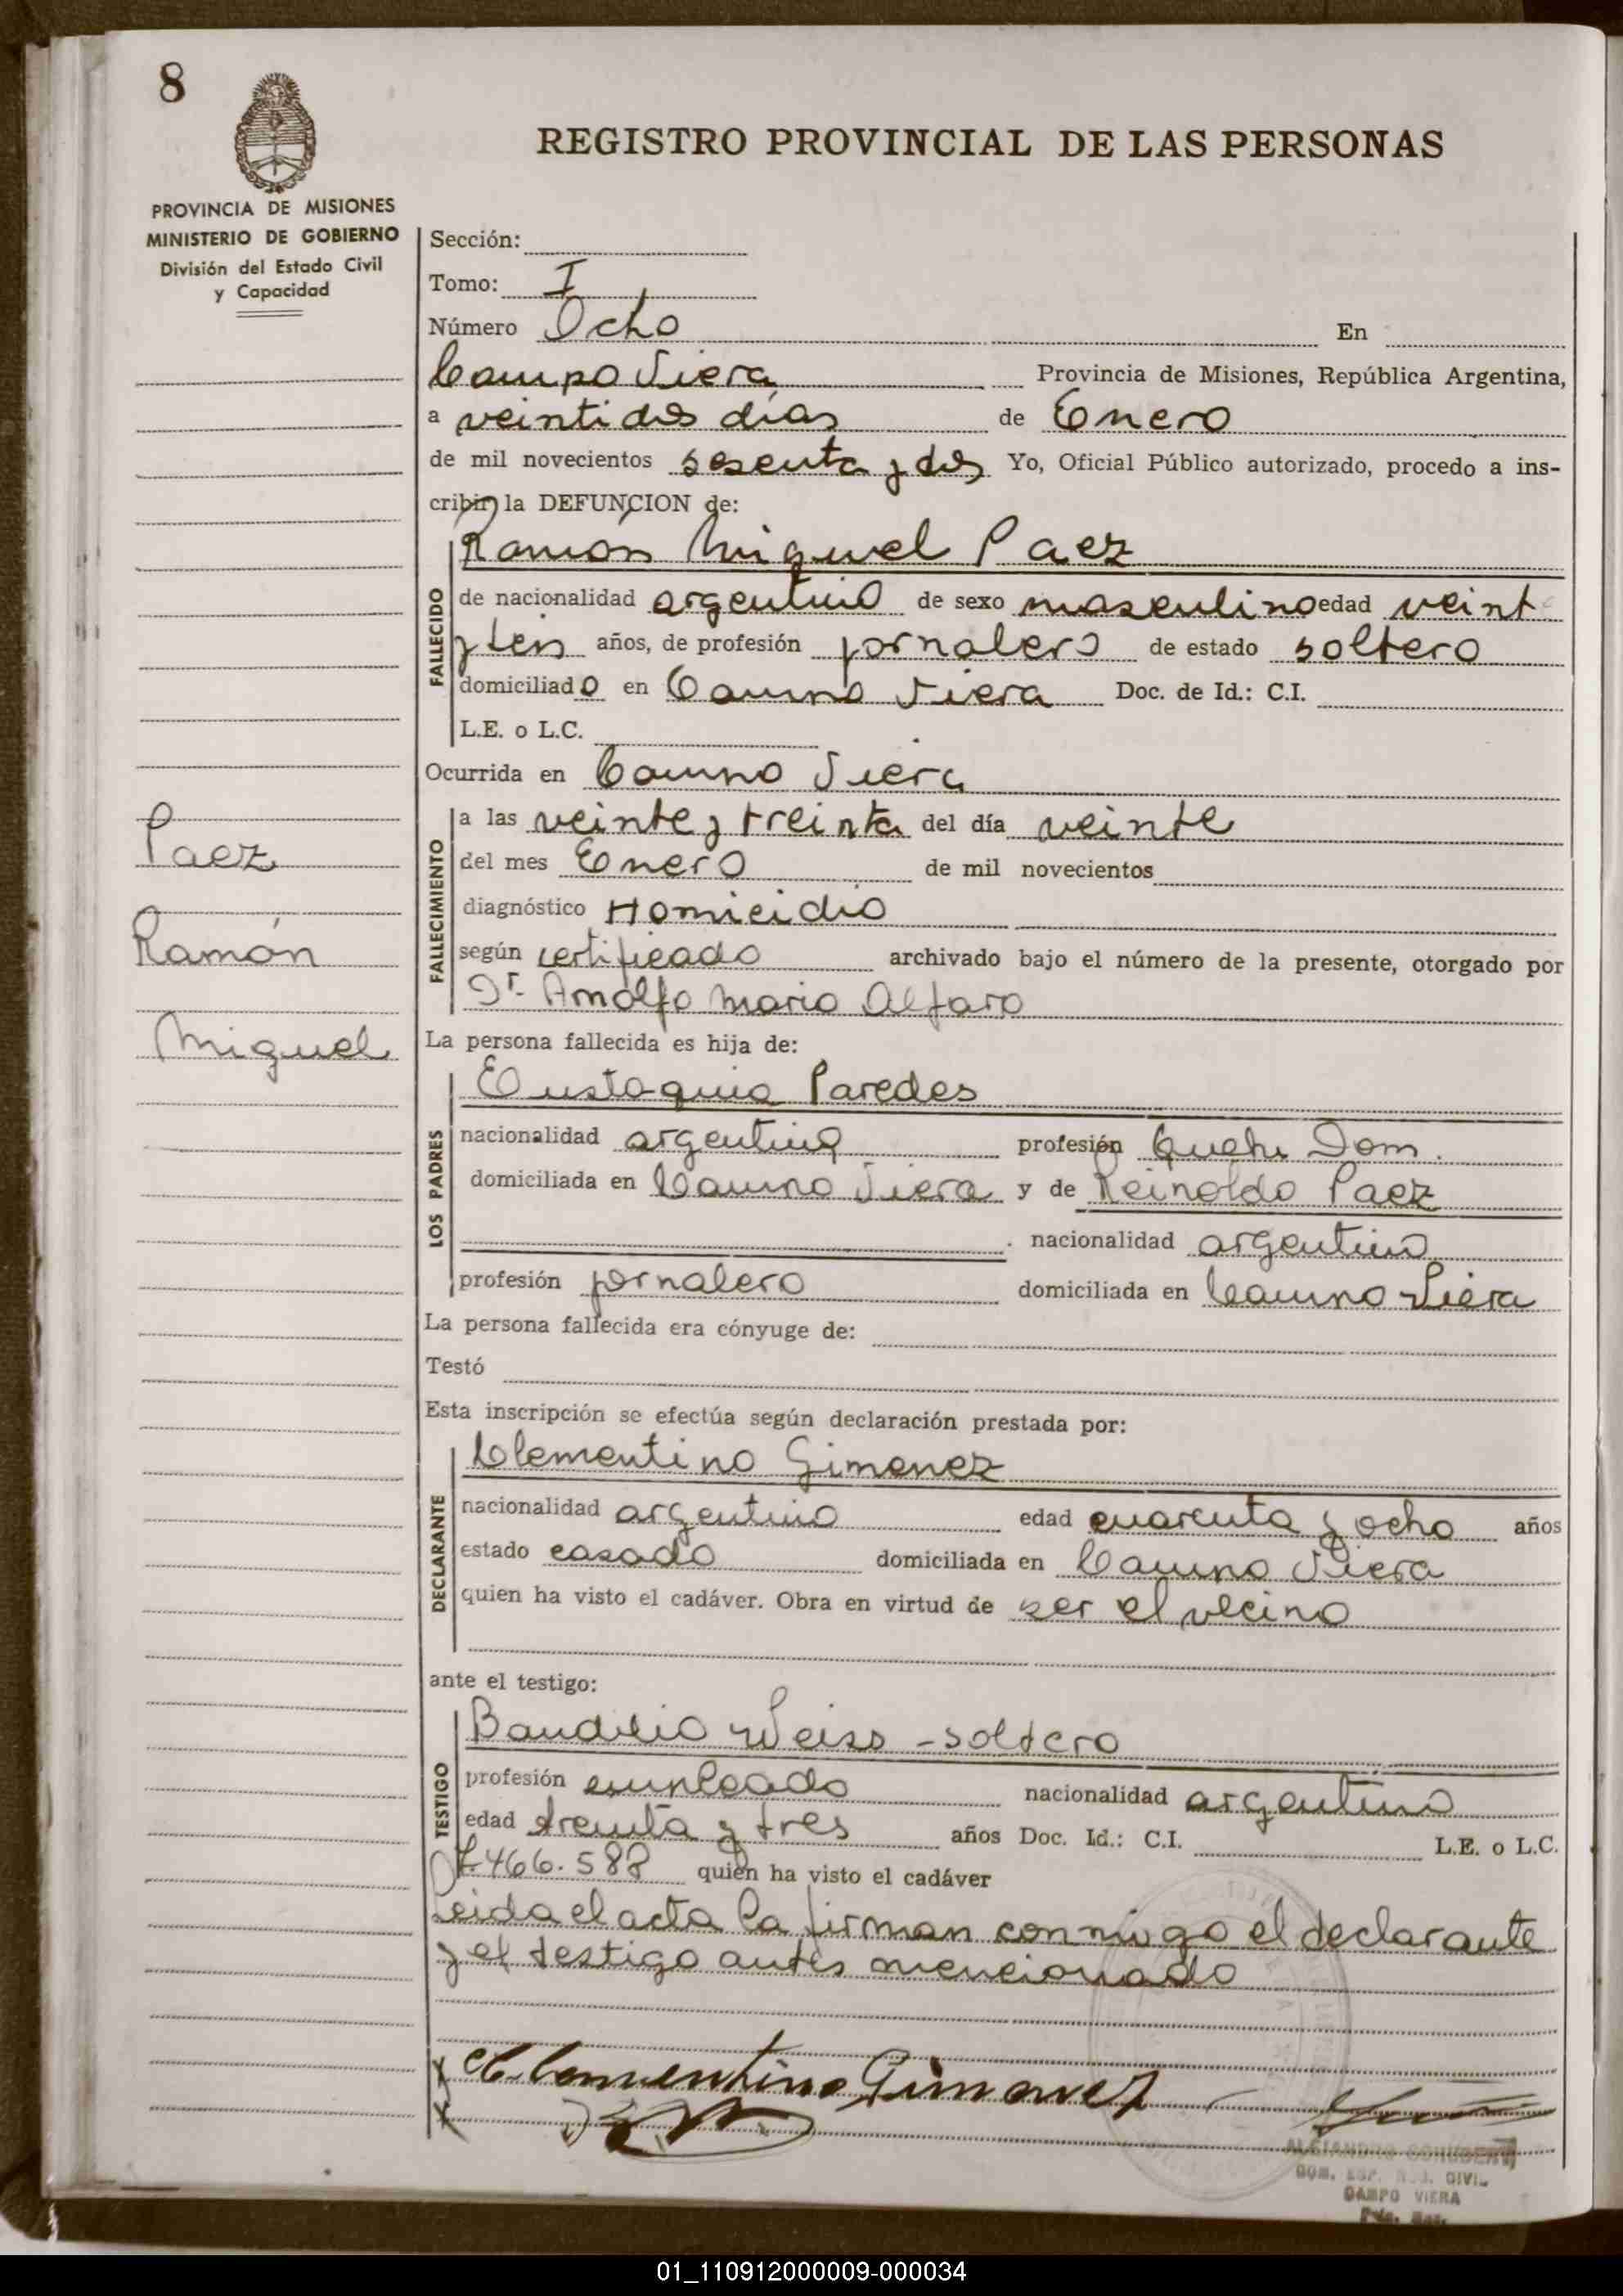 8
REGISTRO PROVINCIAL DE LAS PERSONAS
PROVINCIA DE MISIONES
MINISTERIO DE GOBIERNO
División del Estado Civil
y Capacidad
Sección:
Tomo: I
Número Ocho En
Campo Viera Provincia de Misiones, República Argentina,
a veintidos días de Enero
de mil novecientos sesenta y dos Yo, Oficial Público autorizado, procedo a ins-
cribir la DEFUNCION de:
Ramón Miguel Paez
FALLECIDO
de nacionalidad argentino de sexo masculino edad veint
y seis años, de profesión jornalero de estado soltero
domiciliado en Campo Viera Doc. de Id.: C.I.
L.E. o L.C.
Ocurrida en Campo Viera
FALLECIMIENTO
a las veinte y treinta del día veinte
del mes Enero de mil novecientos
diagnóstico Homicidio
según certificado archivado bajo el número de la presente, otorgado por
Dr. Arnolfo Mario Alfaro
Paez
Ramón
Miguel
La persona fallecida es hija de:
Eustaquia Paredes
LOS PADRES
nacionalidad argentina profesión Queh. Dom.
domiciliada en Campo Viera y de Reinoldo Paez
nacionalidad argentino
profesión jornalero domiciliada en Campo Viera
La persona fallecida era cónyuge de:
Testó
Esta inscripción se efectúa según declaración prestada por:
Clementino Gimenez
DECLARANTE
nacionalidad argentino edad cuarenta y ocho años
estado casado domiciliada en Campo Viera
quien ha visto el cadáver. Obra en virtud de ser el vecino
ante el testigo:
Baudilio Weiss - soltero
TESTIGO
profesión empleado nacionalidad argentino
edad treinta y tres años Doc. Id.: C.I. L.E. o L.C.
7.466.588 quien ha visto el cadáver
Leida el acta la firman conmigo el declarante
y el testigo antes mencionado
Clementino Gimenez
CAMPO VIERA
01_110912000009-000034